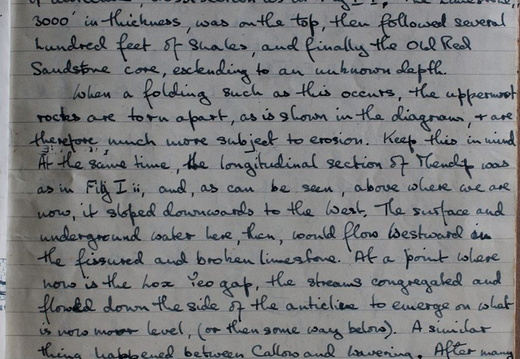 3000' in thickness, was on the top, then followed several
hundred feet of Shales, and finally the Old Red
Sandstone core, extending to an unknown depth.
When a folding such as this occurs, the uppermost
rocks are torn apart, as is shown in the diagram, & are
therefore much more subject to erosion. Keep this in mind
At the same time, the longitudinal section of Mendip was
as in Fig I ii, and, as can be seen, above where we are
now, it sloped downwards to the West. The surface and
underground water here, then, would flow Westward in
the fissured and broken limestone. At a point where
now is the Lox Yeo gap, the streams congregated and
flowed down the side of the anticline to emerge on what
is now moor level, (or then some way below). A similar
thing happened between Callow and Wavering. After many